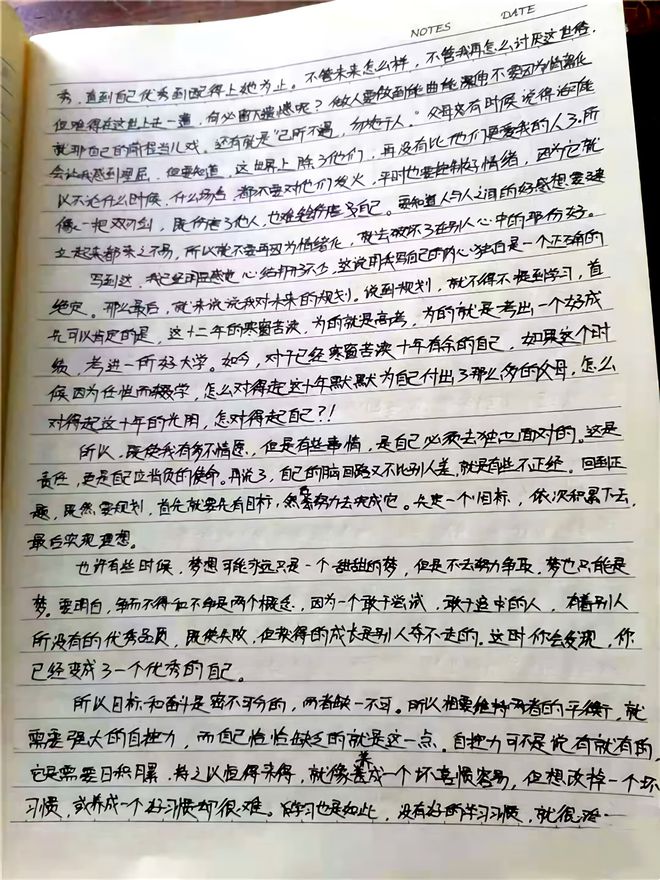 NOTES DATE
秀,直到自己优秀到配得上她为止。不管未来怎么样,不管我再怎么讨厌这世俗,
但难得在这世上走一遭,何必留下遗憾呢?做人要做到能曲能深伸不要因为情绪化
就那自己的前程当儿戏。还有就是"己所不遇,勿施于人。"父母又有时候说得话可能
会让我感到委屈,但要知道,这世界上除了他们,再没有比他们更爱我的人了。所
以不论什么时候,什么场合,都不要对他们发火,平时也要控制好情绪,因为它就
像一把双刃剑,既伤害了他人,也难免伤害了自己。要知道人与人之间的好感想要建
立起来都来之不易,所以就不要再因为情绪化,就去破坏了在别人心中的那份好。
写到这,我已经明显感觉心结打开了不少,这说明我写自己的内心独白是一个正确的
绝定。那么最后,就来说说我对未来的规划。说到规划,就不得不提到学习,首
先可以肯定的是,这十二年的寒窗苦读,为的就是高考,为的就是考出一个好成
绩,考进一所好大学。如今,对于已经寒窗苦读十年有余的自己,如果这个时
候因为任性而辍学,怎么对得起这十年默默为自己付出了那么多的父母,怎么
对得起这十年的光阴,怎对得起自己?!
所以,既使我有多不情愿,但是有些事情,是自己必须去独立面对的。这是
责任,更是自己应当负的使命。再说了,自己的脑回路又不比别人差,就是有些不正经。回到正
题,既然要规划,首先就要先有目标,然后努力去完成它。先定一个小目标,依次积累下去,
最后实现理想。
也许有些时候,梦想可能永远只是一个甜甜的梦,但是不去努力争取,梦也只能是
梦。要明白,争而不得和不争是两个概念,因为一个敢于尝试,敢于追求的人,有着别人
所没有的优秀品质,既使失败,但获得的成长是别人夺不走的。这时你会发现,你
已经变成了一个优秀的自己。
所以目标和奋斗是密不可分的,两者缺一不可。所以想要维持两者的平衡,就
需要强大的自控力,而自己恰恰缺乏的就是这一点。自控力可不是说有就有的,
它是需要日积月累,持之以恒得来得,就像养成一个坏习惯容易,但想改掉一个坏
习惯,或养成一个好习惯却很难。学习也是如此,没有好的学习习惯,就很